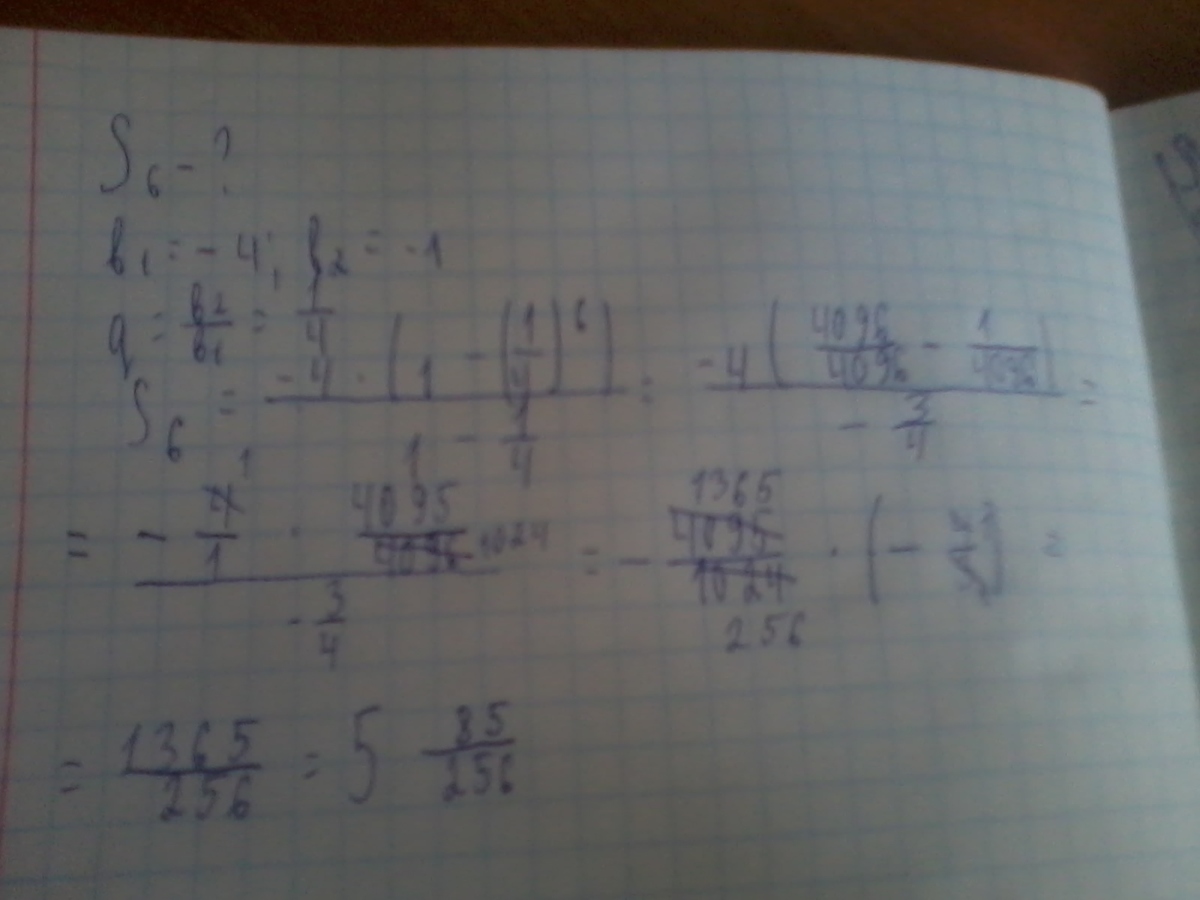 S₆ - ?
b₁ = -4; b₂ = -1
q = b₂/b₁ = 1/4
S₆ = (-4 · (1 - (1/4)⁶))/(1 - 1/4) = (-4(4096/4096 - 1/4096))/(-3/4) =
= (-4/1 1 · 4095/4096 1024)/(-3/4) = - 1365 4095/1024 256 · (-) =
= 1365/256 = 5 85/256